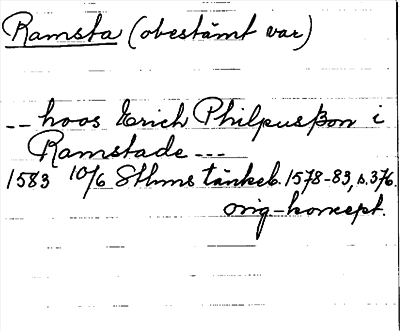 Ramsta (obestämt var)
-- hoos Erich Philpusßon i
Ramstade ---
1583 10/6 Sthms tänkeb. 1578-83, s. 376.
orig-koncept.